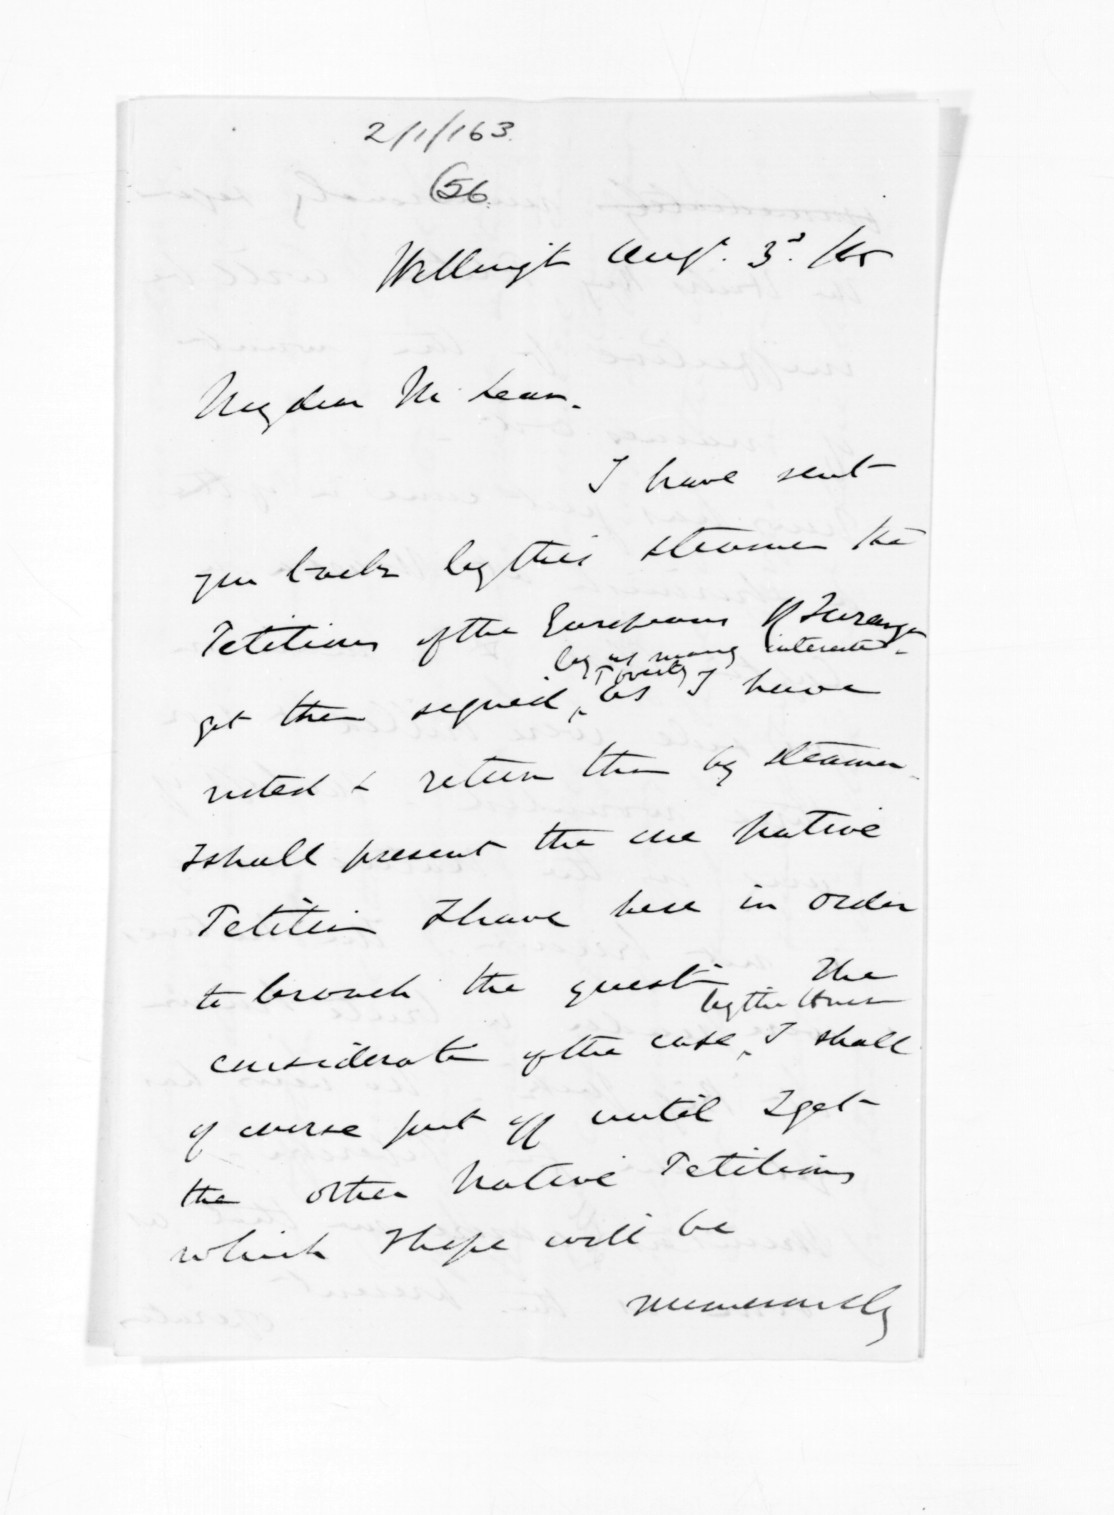 2/1/163.
56.
Wellingt Augt. 3d. /65
My dear McLean.
I have sent
you back by this steamer the
Petitions of the Europeans of Turanga
by as many interested.
get them signed, as I have
noted & return them by steamer.
I shall present the one Native
Petition I have here in order
to broach the questn The
by the House
consideratn of the case, I shall
of course put off until I get
the other Native Petitions
which I hope will be
numerously